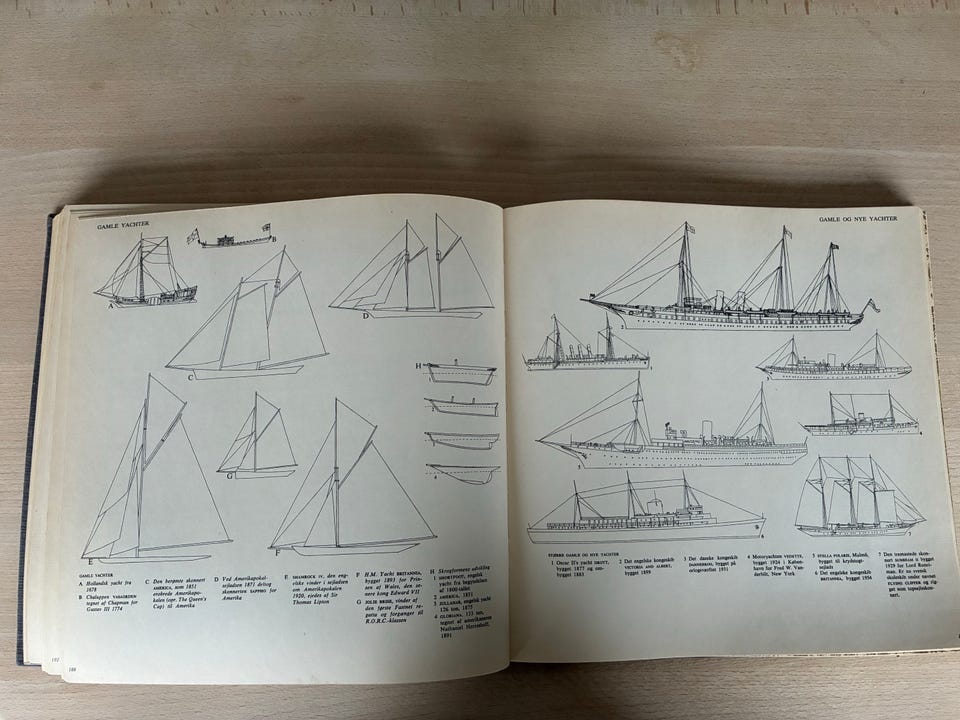 GAMLE YACHTER
GAMLE OG NYE YACHTER
A
B
C
D
E
F
G
H
1
2
3
4
5
6
7
GAMLE YACHTER
A Hollandsk yacht fra
1678
B Chalupen VASAORDEN
tegnet af Chapman for
Gustav III 1774
C Den berømte skonnert
AMERICA, som 1851
erobrede Amerikapo-
kalen (opr. The Queen's
Cup) til Amerika
D Ved Amerikapokal-
sejladsen 1871 deltog
skonnerten SAPPHO for
Amerika
E SHAMROCK IV, den eng-
elske vinder i sejladsen
om Amerikapokalen
1920, ejedes af Sir
Thomas Lipton
F H.M. Yacht BRITANNIA,
bygget 1893 for Prin-
sen af Wales, den se-
nere kong Edward VII
G JOLIE BRISE, vinder af
den første Fastnet re-
gatta og forganger til
R.O.R.C.-klassen
H Skrogformens udvikling
1 SHORTFOOT, engelsk
yacht fra begyndelsen
af 1800-tallet
2 AMERICA, 1851
3 JULLANAR, engelsk yacht
126 ton, 1875
4 GLORIANA, 133 ton,
tegnet af amerikaneren
Nathanael Herreshoff,
1891
STØRRE GAMLE OG NYE YACHTER
1 Oscar II's yacht DROTT,
bygget 1877 og om-
bygget 1883
2 Det engelske kongeskib
VICTORIA AND ALBERT,
bygget 1899
3 Det danske kongeskib
DANNEBROG, bygget på
orlogsværftet 1931
4 Motoryachten VEDETTE,
bygget 1924 i Køben-
havn for Fred W. Van-
derbilt, New York
5 STELLA POLARIS, Malmø,
bygget til krydstogt-
sejlads
6 Det engelske kongeskib
BRITANNIA, bygget 1954
7 Den tremastede skon-
nert SUNBEAM II bygget
1929 for Lord Runci-
man. Er nu svensk
skoleskib under navnet
FLYING CLIPPER og rig-
get som topsejlsskon-
nert.
192
188